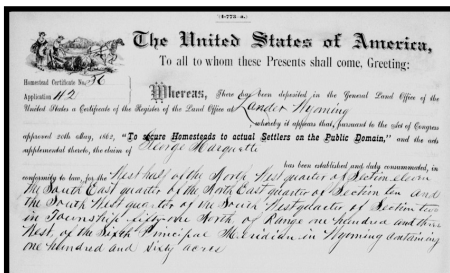 (4-772 a.)
The United States of America,
To all to whom these Presents shall come, Greeting:
Homestead Certificate No. 36
Application 42
Whereas, There has been deposited in the General Land Office of the
United States a Certificate of the Register of the Land Office at Lander Wyoming
, whereby it appears that, pursuant to the Act of Congress
approved 20th May, 1862, "To secure Homesteads to actual Settlers on the Public Domain," and the acts
supplemental thereto, the claim of George Marquette
has been established and duly consummated, in
conformity to law, for the West half of the North West quarter of Section eleven
the South East quarter of the North East quarter of Section ten and
the South West quarter of the South West quarter of Section two
in Township fifty one North of Range one hundred and three
West, of the Sixth Principal Meridian in Wyoming containing
one hundred and sixty acres